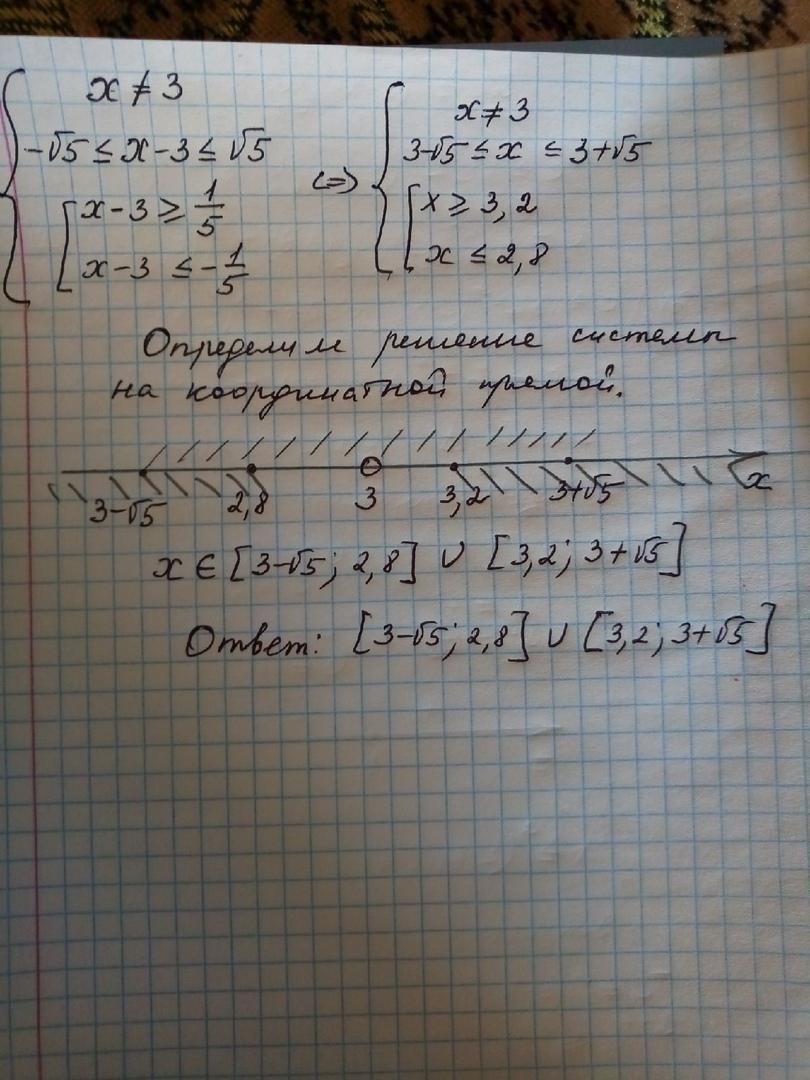 x ≠ 3
-√5 ≤ x - 3 ≤ √5
x - 3 ≥ 1/5
x - 3 ≤ -1/5
<=>
x ≠ 3
3-√5 ≤ x ≤ 3+√5
x ≥ 3,2
x ≤ 2,8
Определим решение системы
на координатной прямой.
3-√5 2,8 3 3,2 3+√5 x
x ∈ [3-√5; 2,8] ∪ [3,2; 3+√5]
Ответ: [3-√5; 2,8] ∪ [3,2; 3+√5]